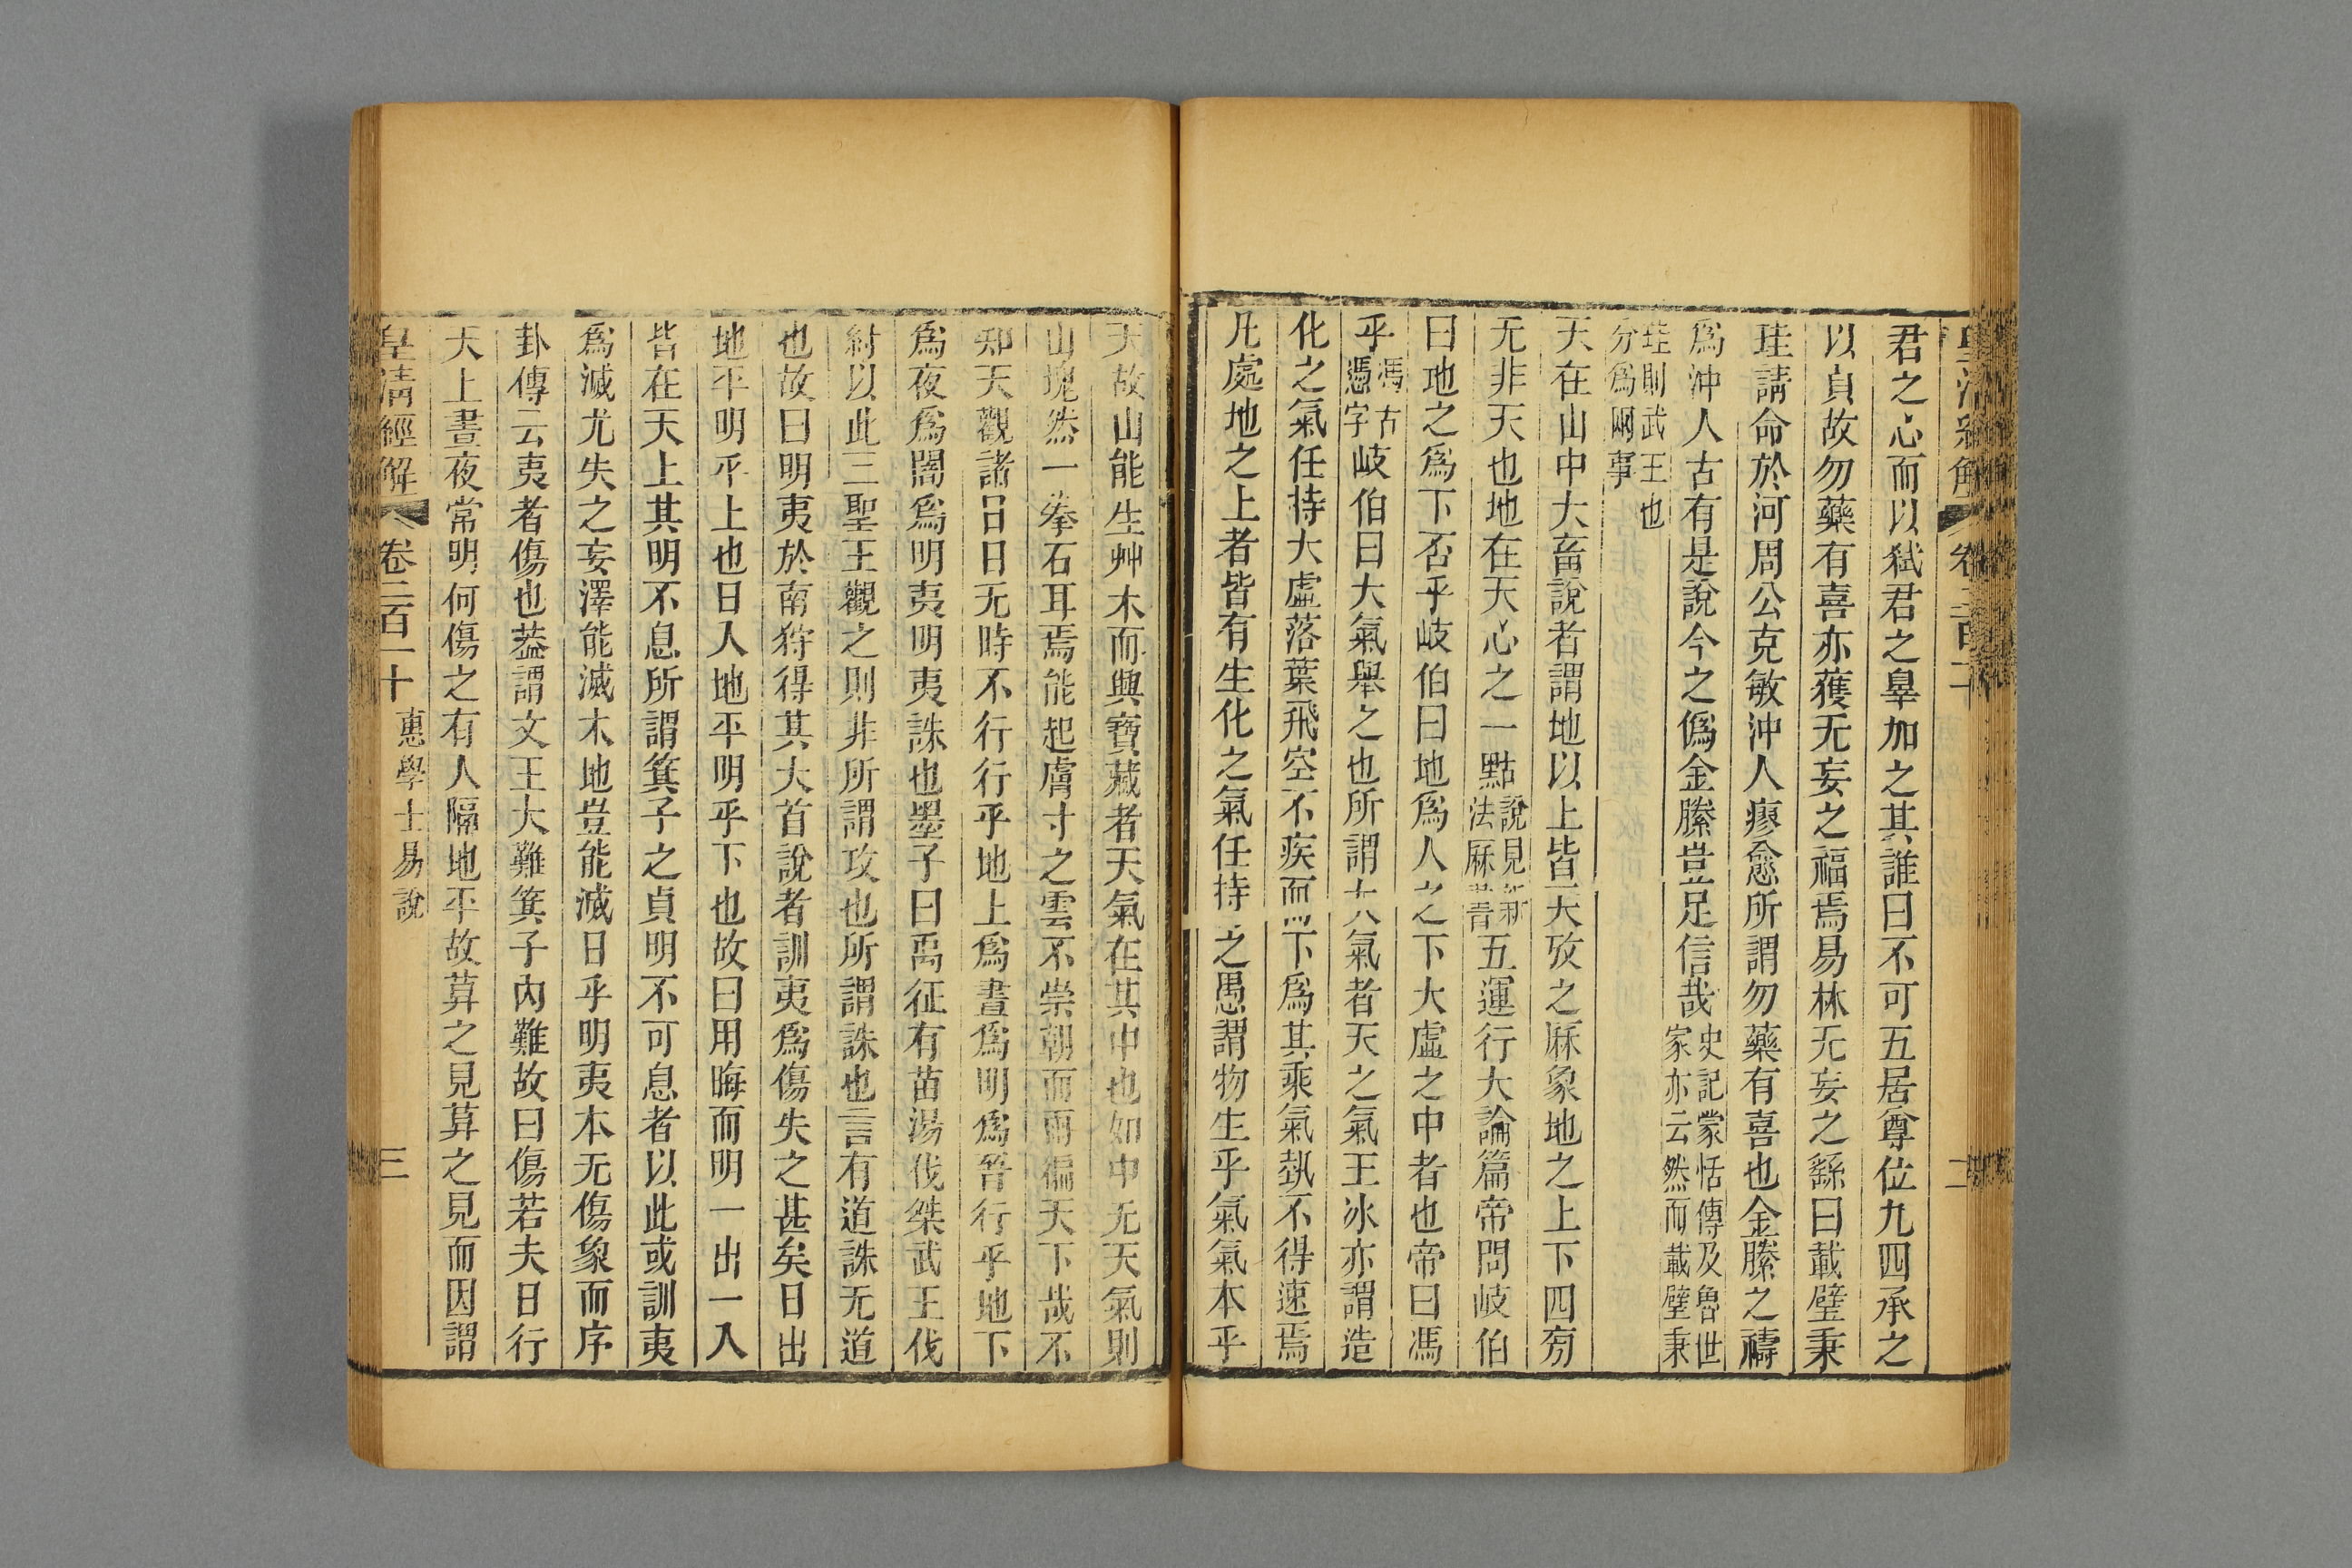 皇清經解 卷二百一十 二
君之心而以弑君之辠加之其誰曰不可五居尊位九四承之
以貞故勿藥有喜亦獲无妄之福焉易林无妄之繇曰載璧秉
珪請命於河周公克敏沖人瘳愈所謂勿藥有喜也金縢之禱
爲沖人古有是說今之僞金縢豈足信哉史記蒙恬傳及魯世家亦云然而載璧秉
珪則武王也分爲兩事
天在山中大畜說者謂地以上皆天攷之厤象地之上下四旁
无非天也地在天心之一點說見新法厤書五運行大論篇帝問岐伯
曰地之爲下否乎岐伯曰地爲人之下大虛之中者也帝曰馮
乎馮古憑字岐伯曰大氣舉之也所謂大氣者天之氣王冰亦謂造
化之氣任持大虛落葉飛空不疾而下爲其乘氣埶不得速焉
凡處地之上者皆有生化之氣任持之愚謂物生乎氣氣本乎
天故山能生艸木而興寶藏者天氣在其中也如中无天氣則
山塊然一拳石耳焉能起膚寸之雲不崇朝而雨徧天下哉不
知天觀諸日日无時不行行乎地上爲晝爲明爲晉行乎地下
爲夜爲闇爲明夷明夷誅也墨子曰禹征有苗湯伐桀武王伐
紂以此三聖王觀之則非所謂攻也所謂誅也言有道誅无道
也故曰明夷於南狩得其大首說者訓夷爲傷失之甚矣日出
地平明乎上也日入地平明乎下也故曰用晦而明一出一入
皆在天上其明不息所謂箕子之貞明不可息者以此或訓夷
爲滅尤失之妄澤能滅木地豈能滅日乎明夷本无傷象而序
卦傳云夷者傷也葢謂文王大難箕子內難故曰傷若夫日行
天上晝夜常明何傷之有人隔地平故算之見算之見而因謂
皇清經解 卷二百一十 惠學士易說 三